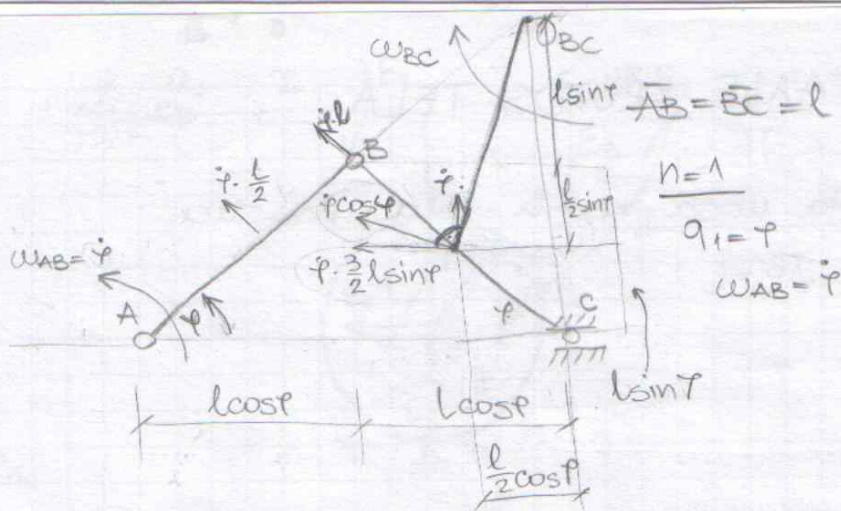 ω_BC
O_BC
l sinφ
AB = BC = l
φ̇·l
B
φ̇·l/2
φ̇ cosφ
φ̇·
l/2 sinφ
n=1
q₁=φ
ω_AB=φ̇
ω_AB=φ̇
φ̇·3/2 l sinφ
A
φ
φ
C
l sinφ
l cosφ
l cosφ
l/2 cosφ